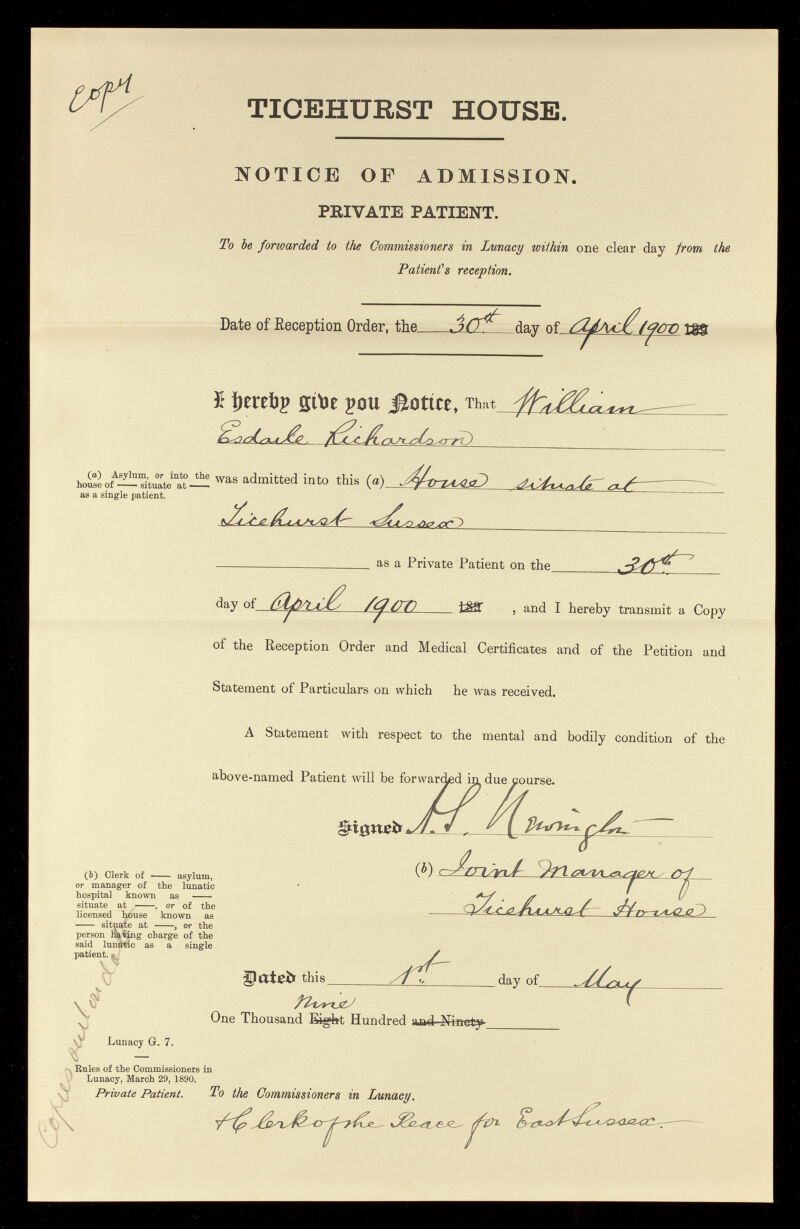 Copy
TICEHURST HOUSE.
NOTICE OF ADMISSION.
PRIVATE PATIENT.
To be forwarded to the Commissioners in Lunacy within one clear day from the
Patient's reception.
Date of Reception Order, the 30th day of April 1900 189
I hereby give you Notice, That William
Esdaile Richardson
(a) Asylum, or into the
house of —— situate at ——
as a single patient.
was admitted into this (a) House situate at
Ticehurst Sussex
as a Private Patient on the 30th
day of April 1900 189 , and I hereby transmit a Copy
of the Reception Order and Medical Certificates and of the Petition and
Statement of Particulars on which he was received.
A Statement with respect to the mental and bodily condition of the
above-named Patient will be forwarded in due course.
Signed A. S. Newington
(b) Joint Manager of
Ticehurst House
(b) Clerk of —— asylum,
or manager of the lunatic
hospital known as ——
situate at ——, or of the
licensed house known as
—— situate at ——, or the
person having charge of the
said lunatic as a single
patient.
Dated this 1st day of May
Nine
One Thousand Eight Hundred and Ninety
Lunacy G. 7.
Rules of the Commissioners in
Lunacy, March 29, 1890.
Private Patient.
To the Commissioners in Lunacy.
+ Clerk of the Peace for East Sussex.
Copies